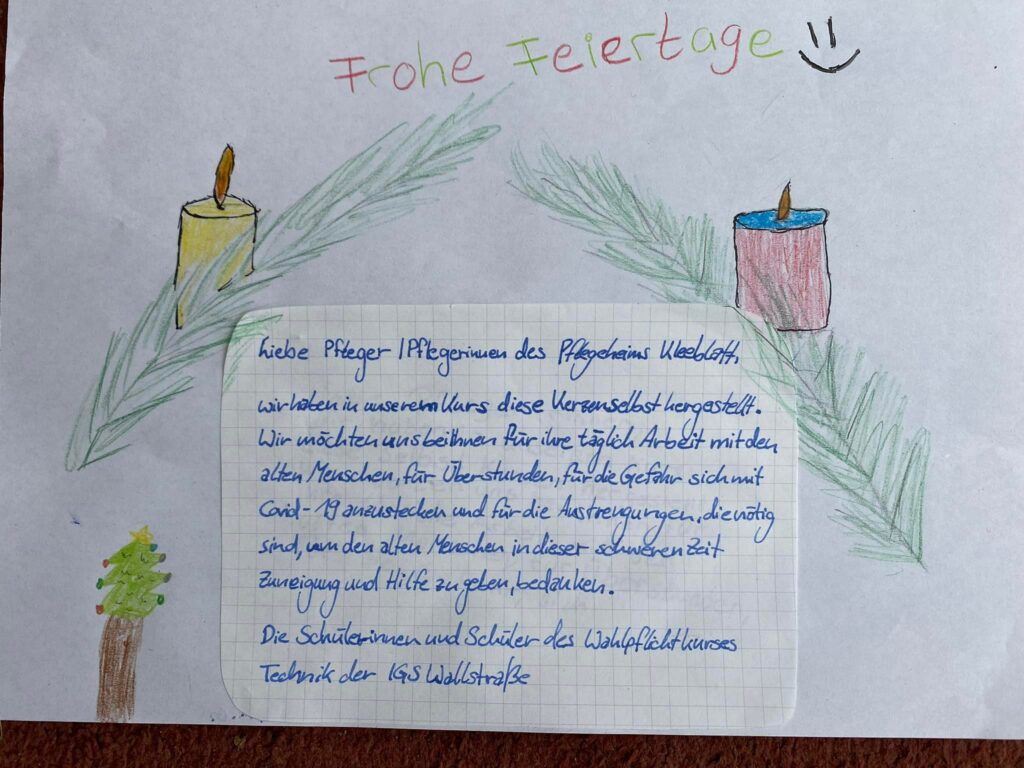 Frohe Feiertage
Liebe Pfleger / Pflegerinnen des Pflegeheims Kleeblatt,
wir haben in unserem Kurs diese Kerzen selbst hergestellt.
Wir möchten uns bei Ihnen für ihre täglich Arbeit mit den
alten Menschen, für Überstunden, für die Gefahr sich mit
Covid-19 anzustecken und für die Anstrengungen, die nötig
sind, um den alten Menschen in dieser schweren Zeit
Zuneigung und Hilfe zu geben, bedanken.
Die Schülerinnen und Schüler des Wahlpflichtkurses
Technik der IGS Wallstraße